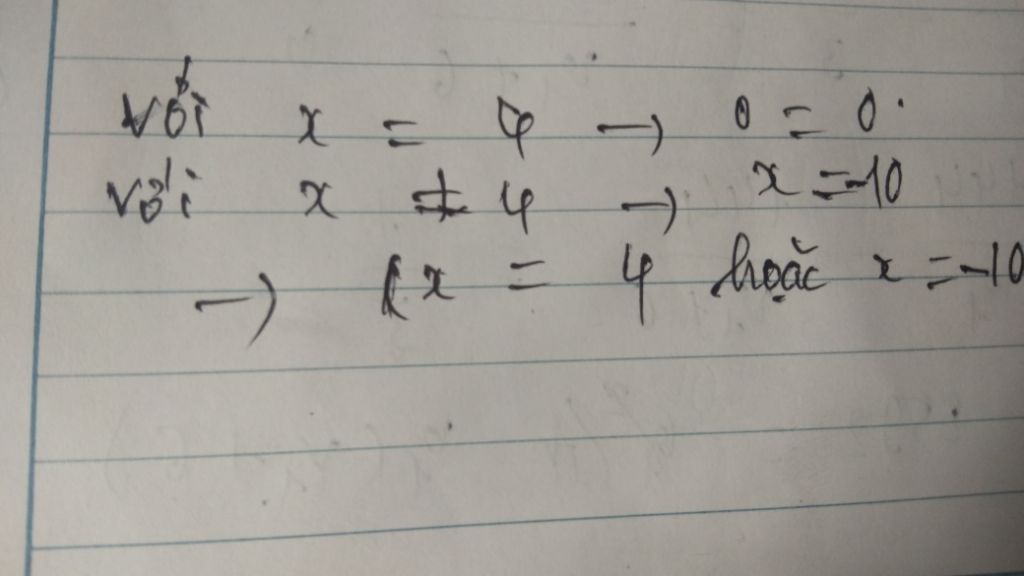 với x = 4 → 0 = 0.
với x ≠ 4 → x = -10
→ x = 4 hoặc x = -10